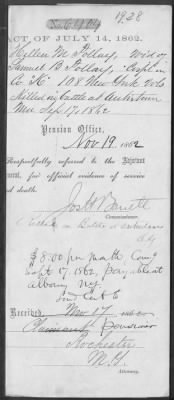 1928
ACT OF JULY 14, 1862.
Hellen M Pollay, Wid of
Samuel B Pollay, Corpl in
Co. K 108 New York Vols
Killed in battle at Antietam
Sep 17, 1862
Pension Office,
Nov 19, 1862
Respectfully referred to the Adjutant
General, for official evidence of service
and death.
Commissioner.
Killed in Battle at
$8.00 per month Comg
Sept 17 1862, payable at
Albany NY.
Received, Nov 17
Claimant,
Rochester
N.Y.
Attorney.